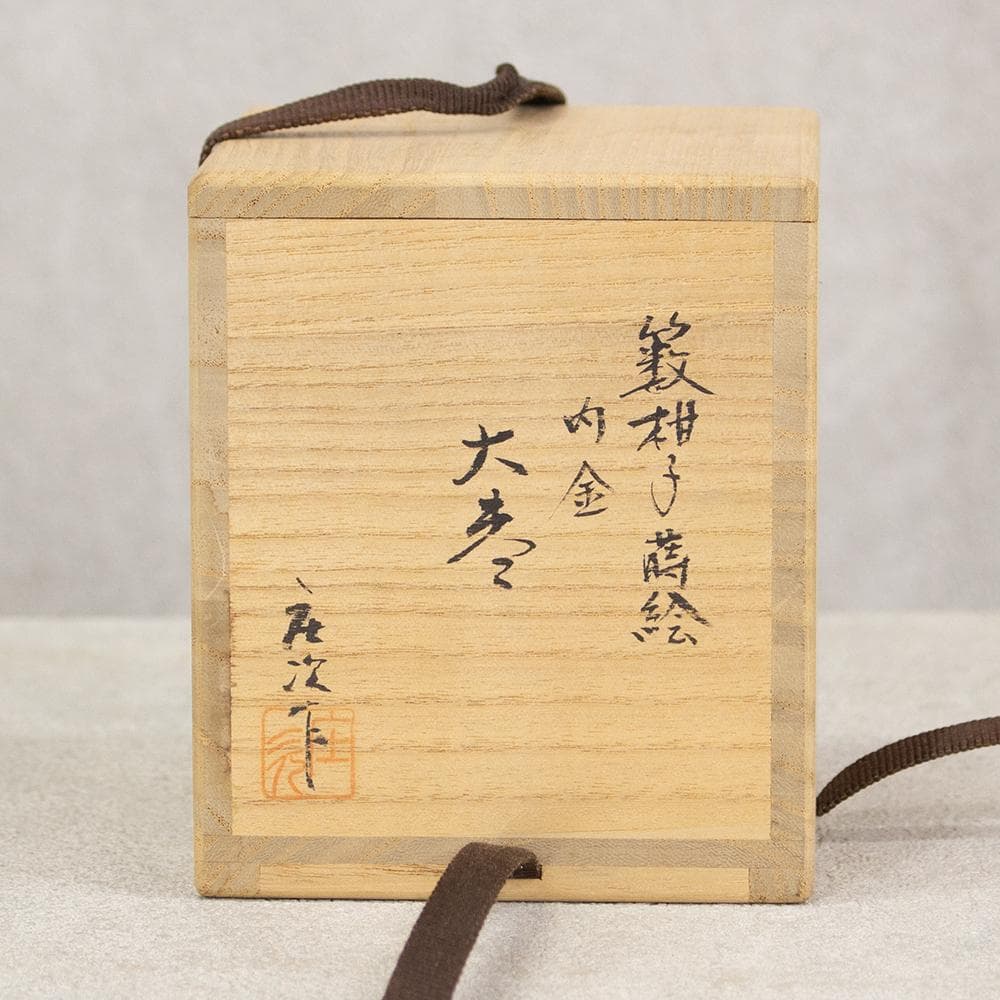 籔柑子蒔絵
内金
大棗
庄次作